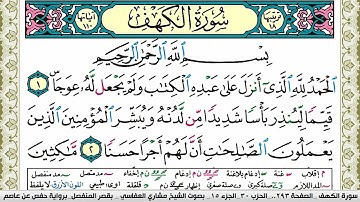 سُورَةُ الكَهْفِ
بِسْمِ ٱللَّهِ ٱلرَّحْمَٰنِ ٱلرَّحِيمِ
ٱلْحَمْدُ لِلَّهِ ٱلَّذِىٓ أَنزَلَ عَلَىٰ عَبْدِهِ ٱلْكِتَٰبَ وَلَمْ يَجْعَل لَّهُۥ عِوَجَاۜ ١
قَيِّمًا لِّيُنذِرَ بَأْسًا شَدِيدًا مِّن لَّدُنْهُ وَيُبَشِّرَ ٱلْمُؤْمِنِينَ ٱلَّذِينَ
يَعْمَلُونَ ٱلصَّٰلِحَٰتِ أَنَّ لَهُمْ أَجْرًا حَسَنًا ٢ مَّٰكِثِينَ
سورة الكهف .. الصفحة ٢٩٣ .. الحزب ٣٠ .. الجزء ١٥ .. بصوت الشيخ مشاري العفاسي .. بقصر المنفصل .. برواية حفص عن عاصم